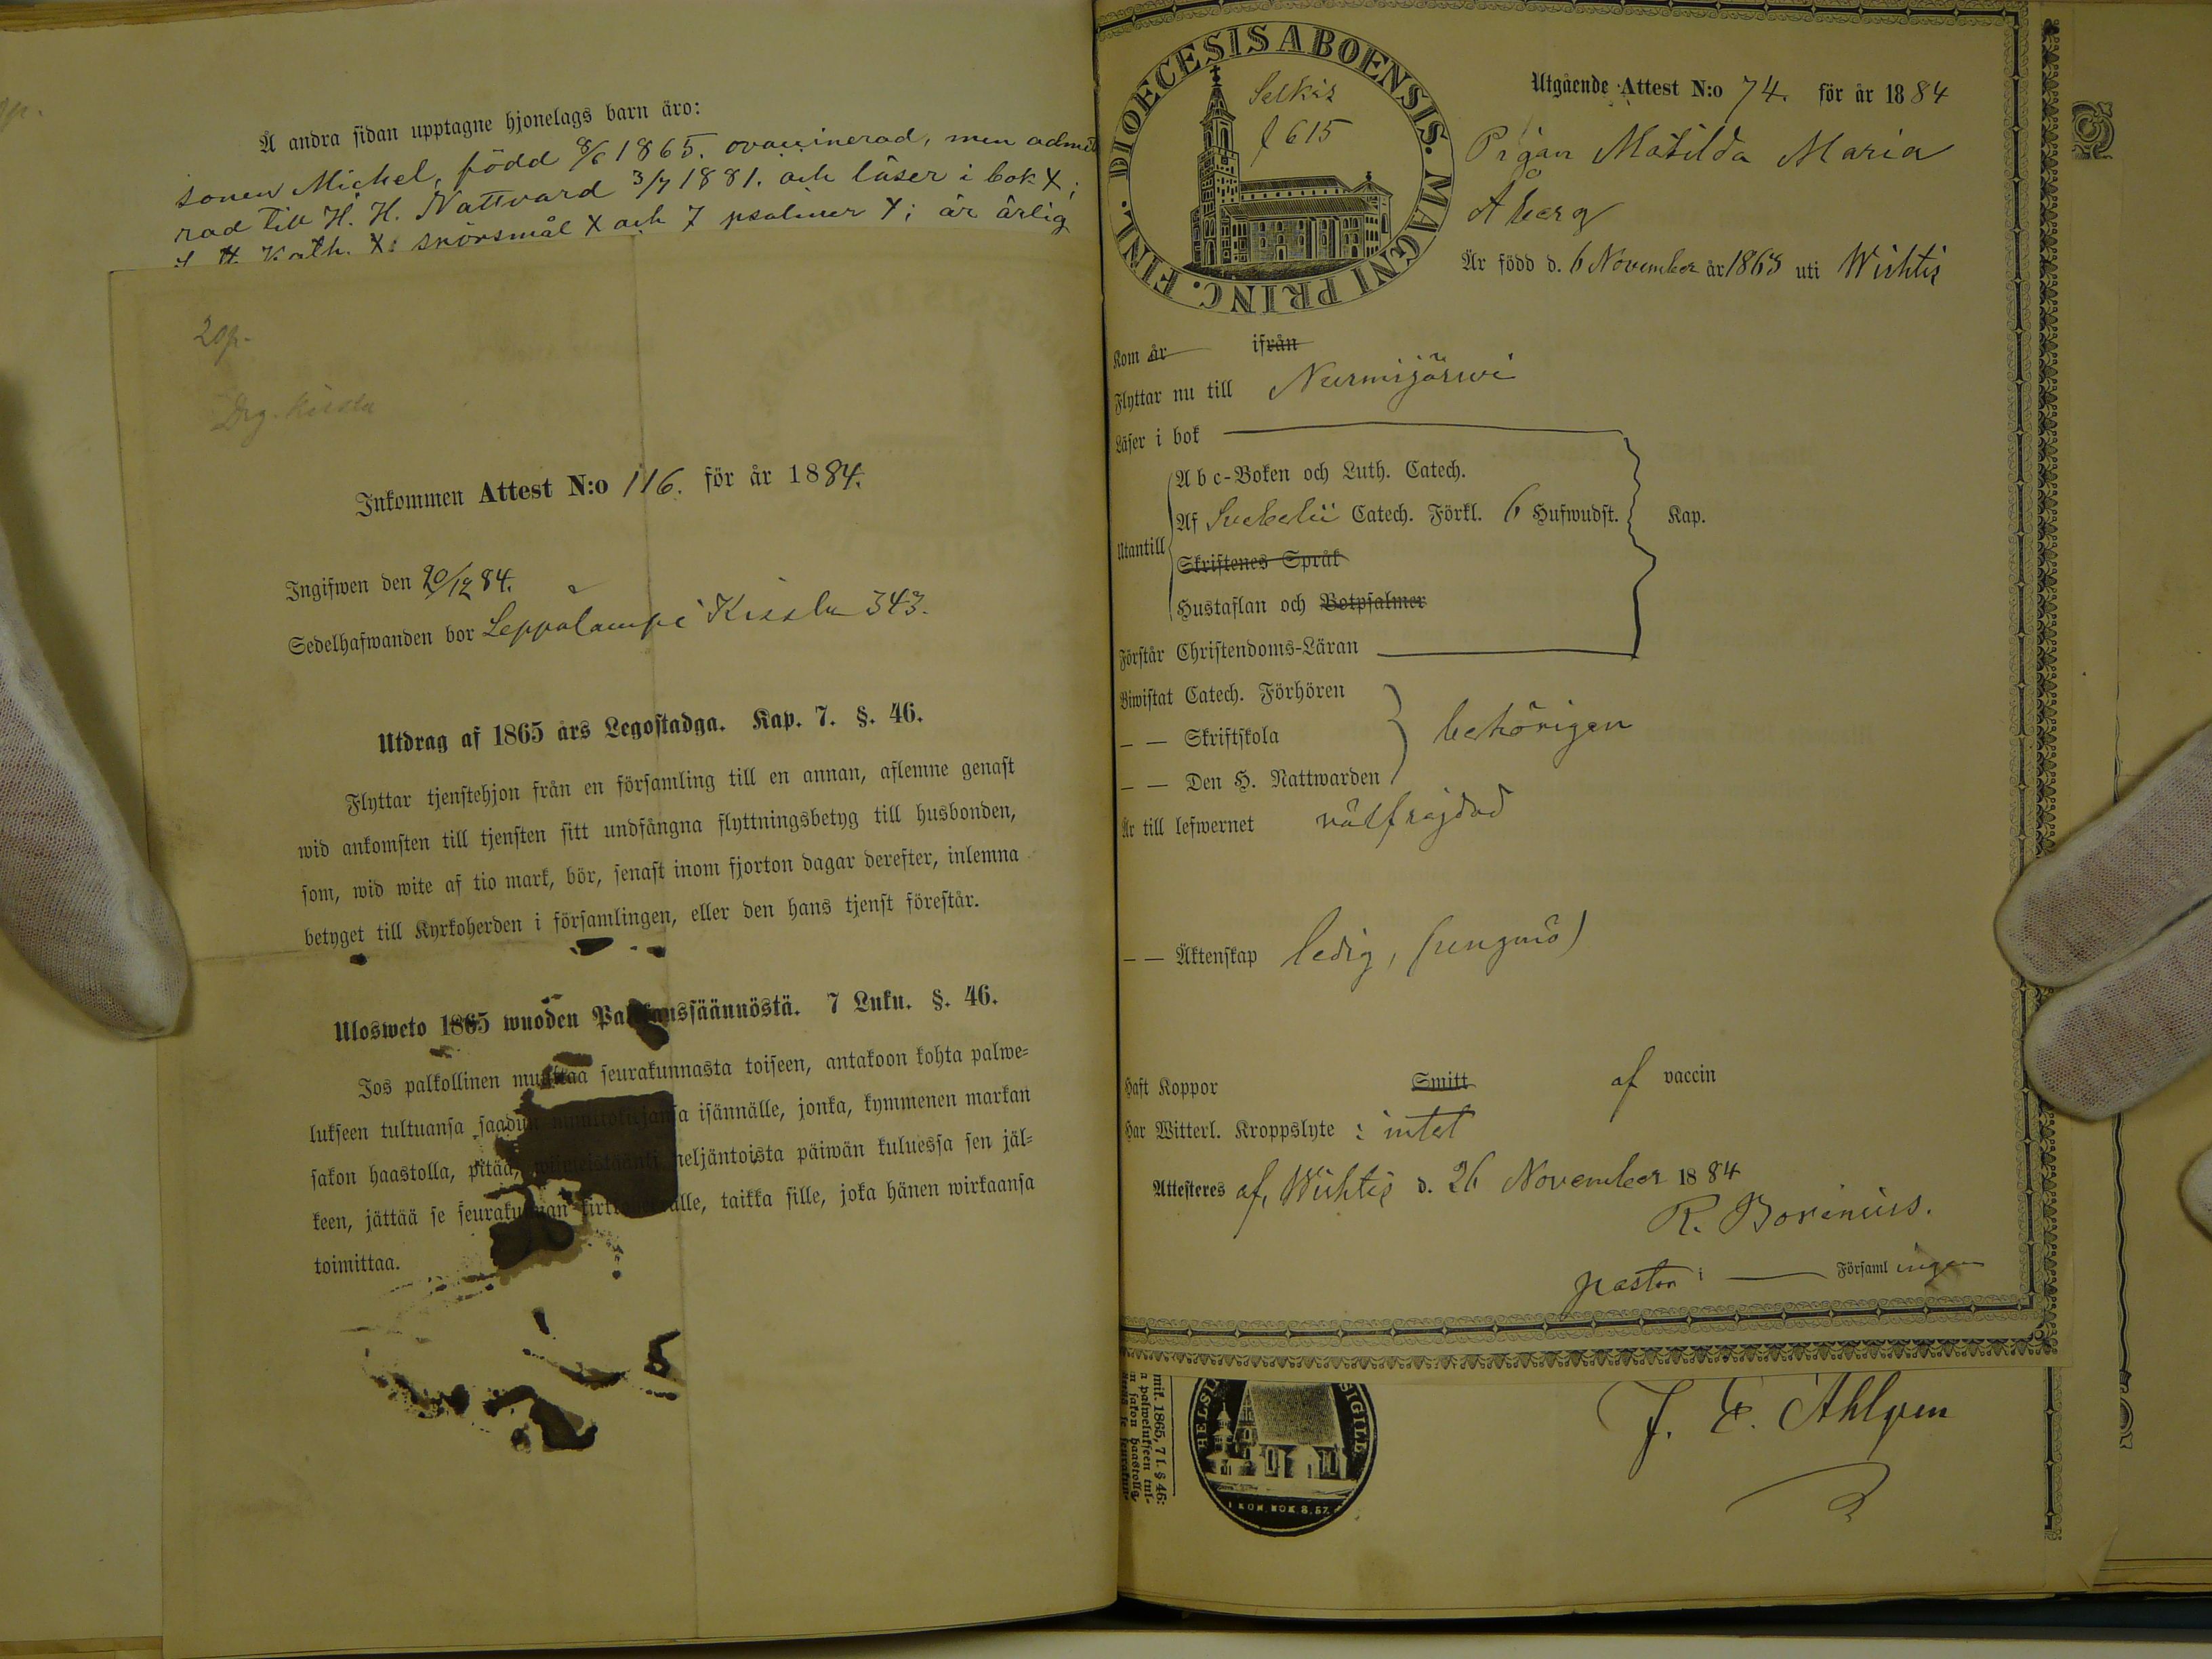 Å andra sidan upptagne hjonelags barn äro:
sonen Michel, född 8/6 1865. ovaccinerad, men admitte
rad till H. H. Nattvard 3/7 1881. och läser i bok X;
Kath. X: spörsmål X och 7 psalmer X; är ärlig
20p.
Drg. Kissla
Inkommen Attest N:o 116. för år 1884.
Ingifwen den 20/12 84.
Sedelhafwanden bor Leppälampi Kissla 343.
Utdrag af 1865 års Legostadga. Kap. 7. §. 46.
Flyttar tjenstehjon från en församling till en annan, aflemne genast
wid ankomsten till tjensten sitt undfångna flyttningsbetyg till husbonden,
som, wid wite af tio mark, bör, senast inom fjorton dagar derefter, inlemna
betyget till Kyrkoherden i församlingen, eller den hans tjenst förestår.
Ulosweto 1865 wuoden Palkkaussäännöstä. 7 Luku. §. 46.
Jos palkollinen muuttaa seurakunnasta toiseen, antakoon kohta palwe=
lukseen tultuansa saadun muuttokirjansa isännälle, jonka, kymmenen markan
sakon haastolla, pitää, wiimeistäänki neljäntoista päiwän kuluessa sen jäl=
keen, jättää se seurakunnan kirkkoherralle, taikka sille, joka hänen wirkaansa
toimittaa.
DIOECESIS ABOENSIS. MAGNI PRINC. FINL.
Selkis
f 615
Utgående Attest N:o 74. för år 1884
Pigan Matilda Maria
Åberg
Är född d. 6 November år 1865 uti Wichtis
Kom år ifrån
Flyttar nu till Nurmijärwi
Läser i bok
A b c-Boken och Luth. Catech.
Utantill
Af Svebelii Catech. Förkl. 6 Hufwudst. Kap.
Skriftenes Språk
Hustaflan och Botpsalmer
Förstår Christendoms-Läran
Biwistat Catech. Förhören
— — Skriftskola behörigen
— — Den H. Nattwarden
Är till lefwernet välfräjdad
— — Äktenskap ledig, (ungmö)
Haft Koppor Smitt af vaccin
Har Witterl. Kroppslyte: intet
Attesteres af, Wichtis d. 26 November 1884
R. Borenius.
pastor i Församlingen
mit. 1865, 7 l. § 46:
a palwelukseen tul-
n sakon haastolla,
HELSI SIGILL
1 KON. BOK. 8, 57.
J. E. Ahlgren